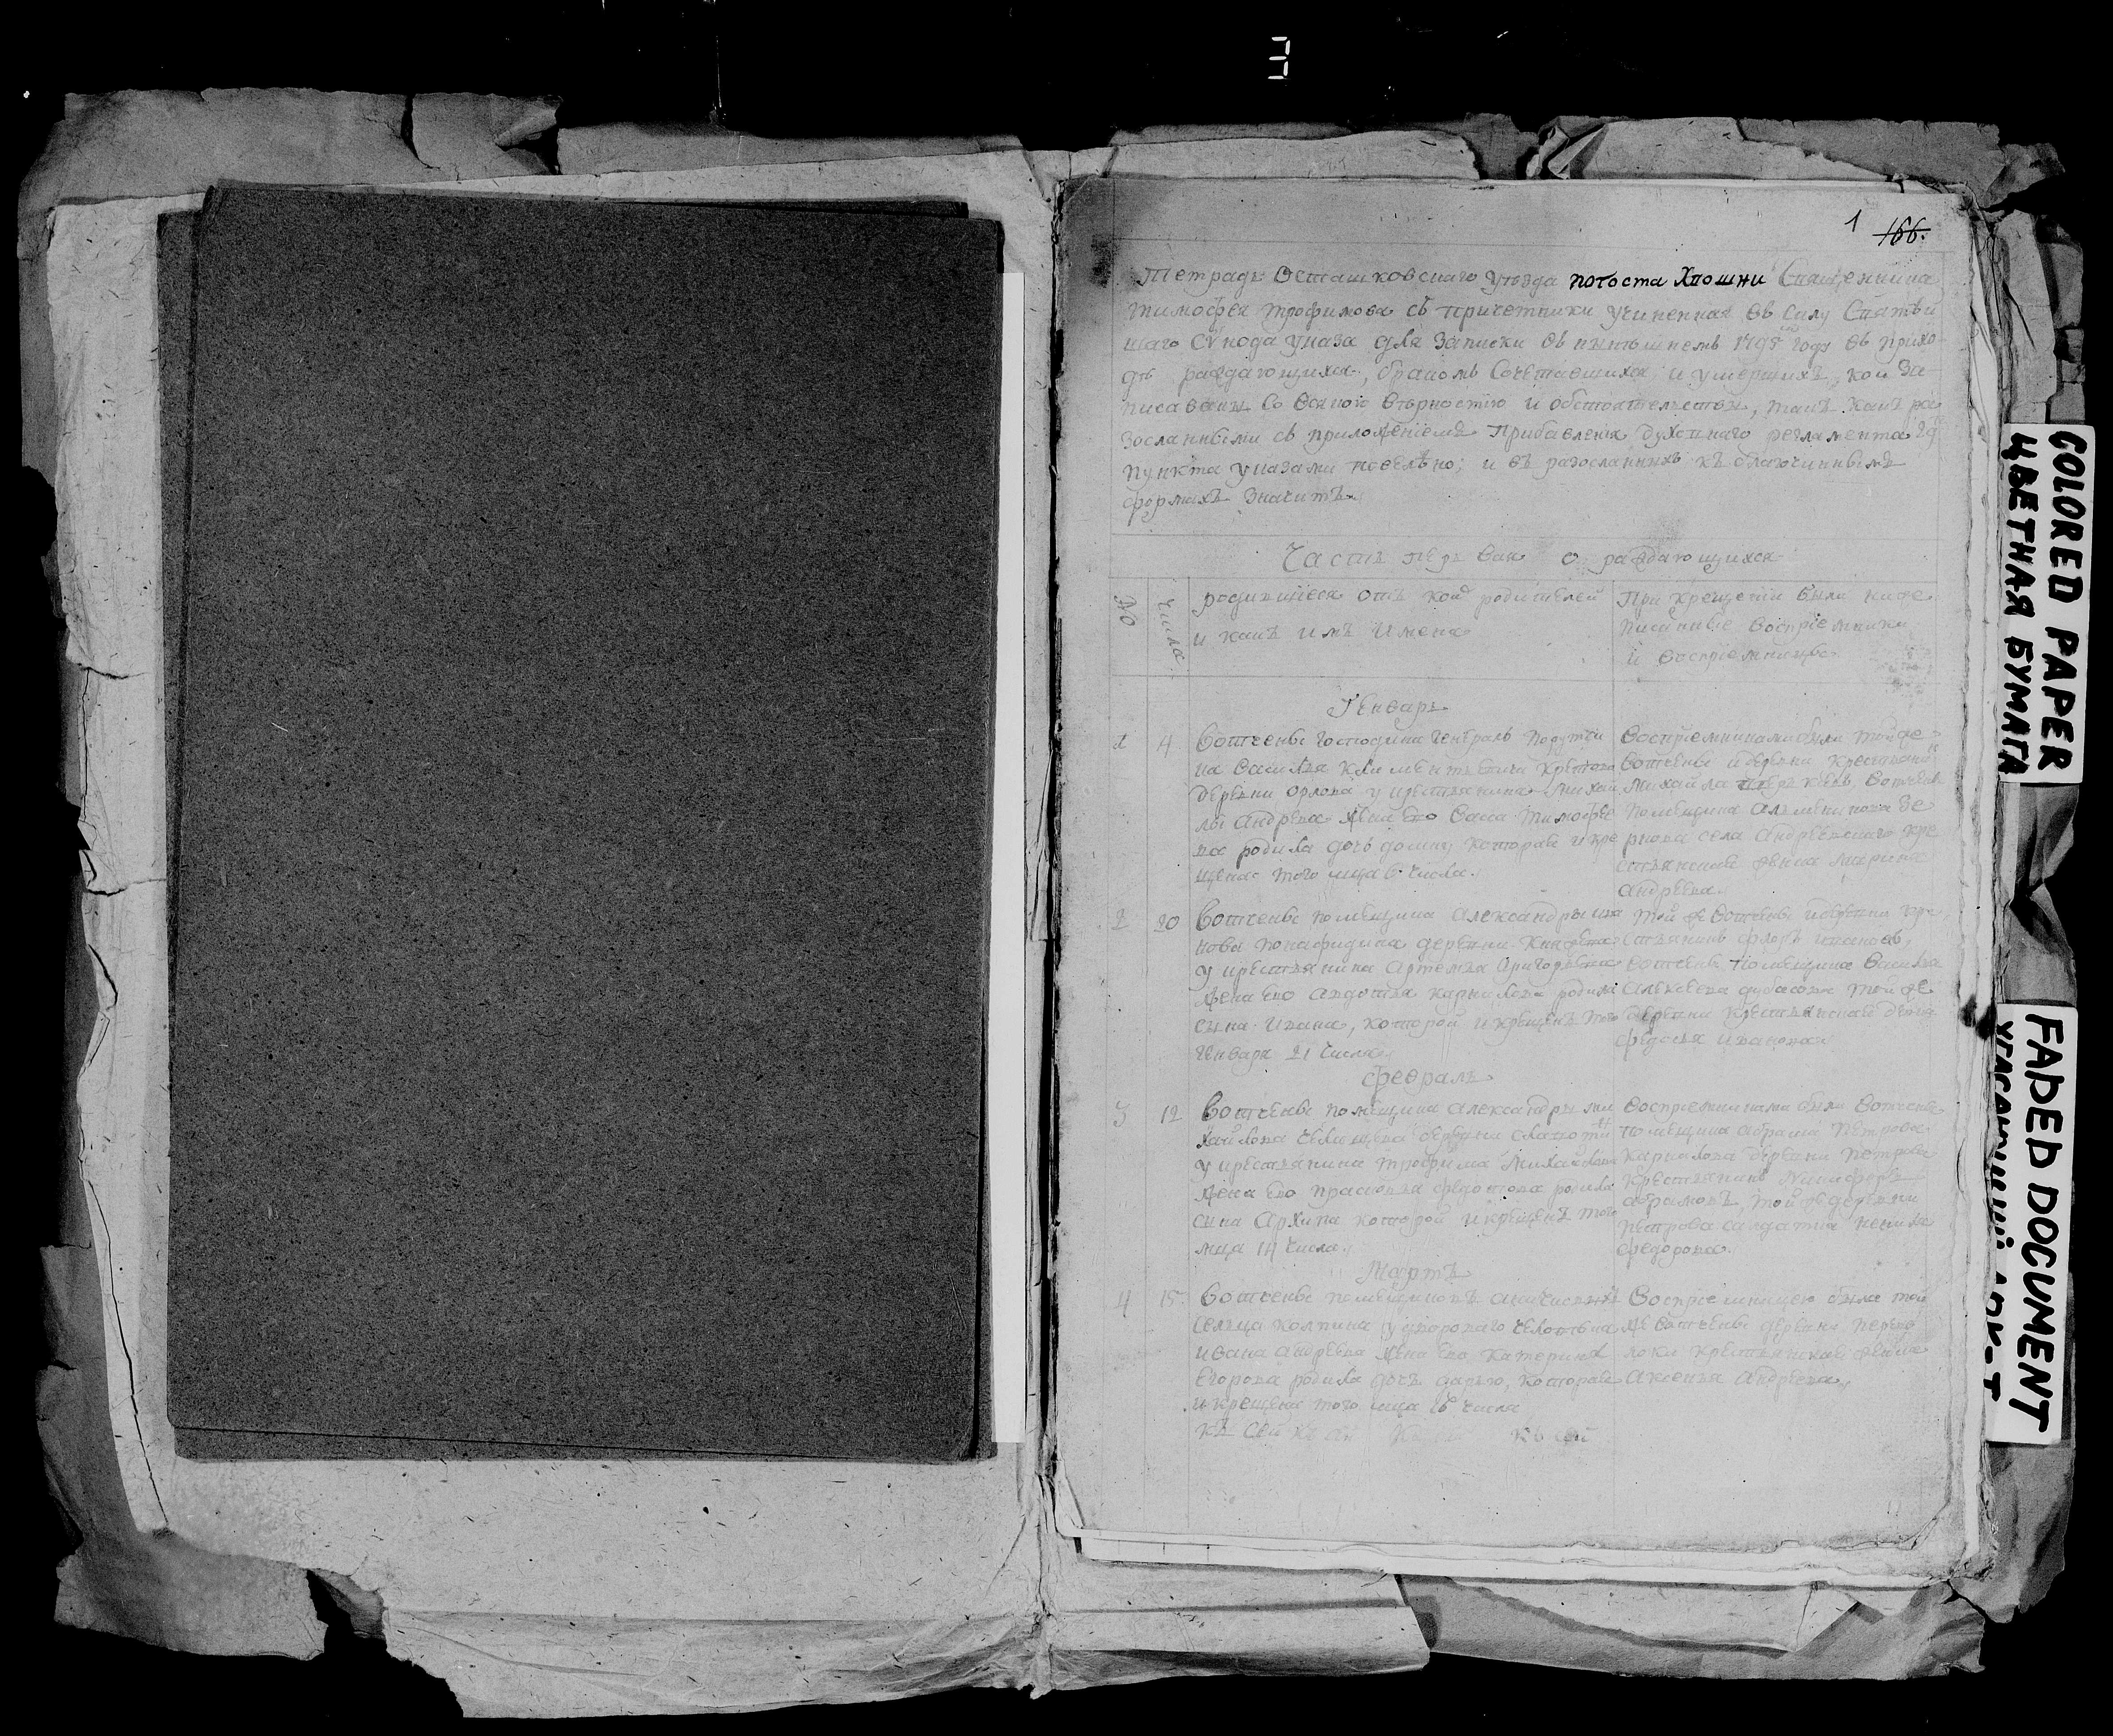 1 166.
Тетрадь Осташковскаго уѣзда погоста Хпошни Священника
тимофея трофимова съ причетники учиненная въ силу Святѣй
шаго Сѵнода указа для записки въ нынѣшнемъ 1795 году въ прихо
дѣ раждающихся, бракомъ Сочетавшихся и умершихъ, кои за
писаваны со всякою вѣрностію и обстоятельствы, такъ какъ ра
зосланными съ приложеніемъ прибавленія духовнаго регламента 29
пункта указами повелѣно; и въ разосланныхъ къ благочиннымъ
формахъ значитъ.
Часть первая о раждающихся
№
числа
родившіеся отъ кого родителей
и какъ имъ имена
При крещеніи были ниже
писанные воспріемники
и воспріемницы
Генварь
1 4 Вотчены господина Генералъ Порутчи
ка Василья Климентьевича
деревни Орлова у крестьянина Михаи
лы Андрева жена ево Васса Тимофѣе
ва родила дочь домну которая и кре
щена того мца 6 числа.
Воспріемниками были тойже
вотчены и деревни крестьянинъ
Михайла вотчены
помещика
села Андреевскаго кре
стьянская Марина
Андрѣева.
2 20 Вотчены помещика Александры
нова понафидина деревни
у крестьянина Артемья Григорьева
жена ево Авдотья карнилова родила
сына Ивана, которой и крещенъ того
Генваря 21 числа.
той же вотчены и деревни кре
стьянинъ флоръ ивановъ,
вотчены помещика Василья
Алексеева той же
деревни крестьянская
Федосья Иванова
Февраль
3 12 Вотчены помещика Александры ми
хайлова челищева деревни
у крестьянина трофима Михайлова
жена ево прасковья федотова родила
сына Архипа которой и крещенъ того
мца 14 числа.
Воспріемниками были вотчены
помещика абрама Петрова
карнилова деревни петрова
крестьянинъ Никифоръ
абрамовъ, той же деревни
петрова салдатка
федорова.
Мартъ
4 15 Вотчены помещиковъ
сельца колпина у двороваго человека
ивана андреева жена ево Катерина
Егорова родила дочь дарью, которая
и крещена того мца 18 числа
Воспріемницею была той
же вотчены деревни
крестьянская
Аксинья Андрѣева.
къ сей
COLORED PAPER
ЦВЕТНАЯ БУМАГА
FADED DOCUMENT